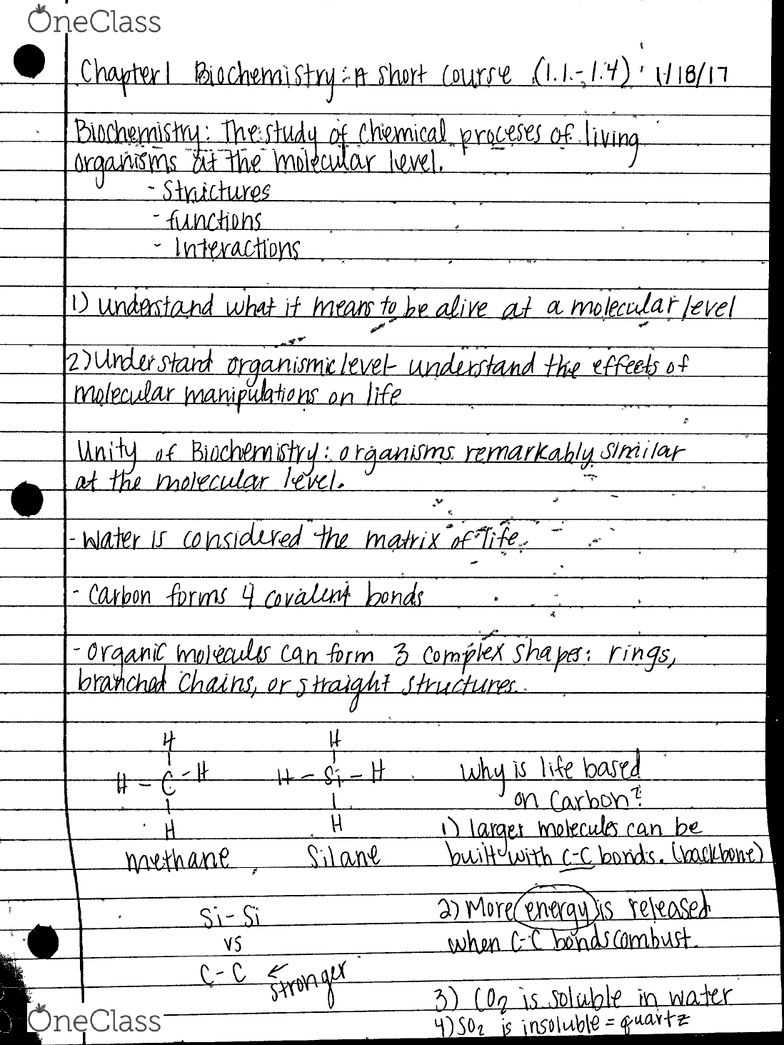 OneClass
Chapter 1 Biochemistry: A short course (1.1.-1.4) 1/18/17
Biochemistry: The study of chemical proceses of living
organisms at the molecular level.
- Structures
- functions
- Interactions
1) understand what it means to be alive at a molecular level
2) Understand organismic level- understand the effects of
molecular manipulations on life
Unity of Biochemistry: organisms remarkably similar
at the molecular level.
- Water is considered the matrix of life.
- Carbon forms 4 covalent bonds
- Organic molecules can form 3 complex shapes: rings,
branched chains, or straight structures.
H H
H - C - H H - Si - H
H H
methane, Silane
Why is life based
on Carbon?
1) larger molecules can be
built with C-C bonds. (backbone)
Si-Si
vs
C-C ← stronger
2) More energy is released
when C-C bonds combust.
3) CO2 is soluble in water
4) SO2 is insoluble = quartz
OneClass